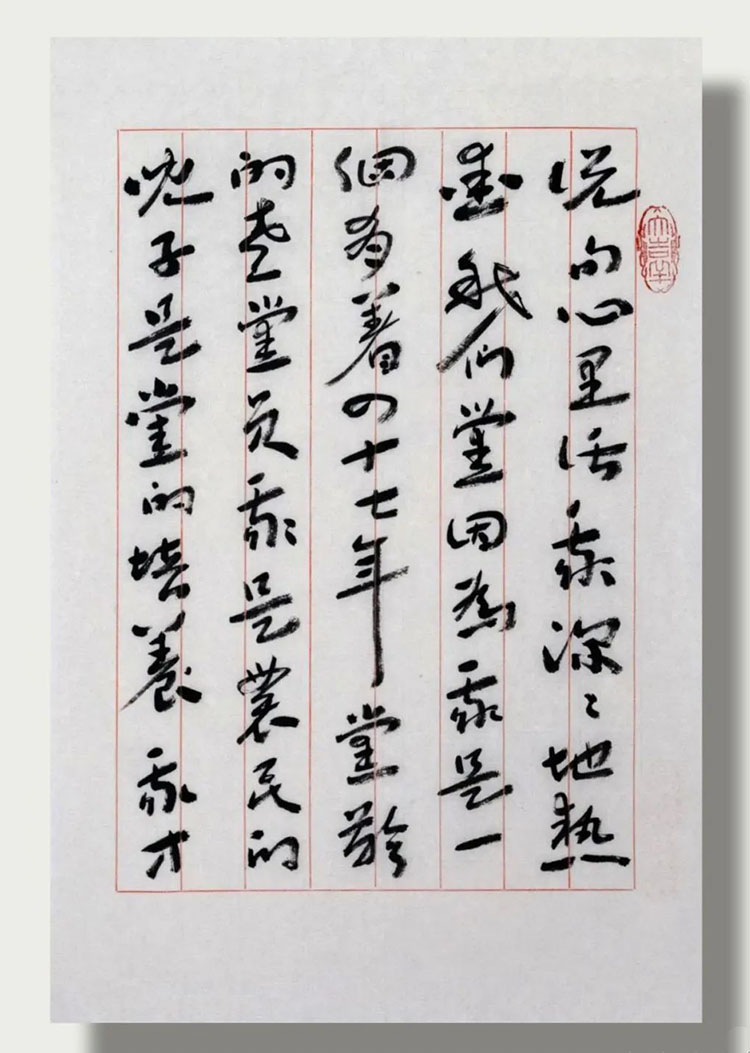 说句心里话我深深地热
爱我们党因为我是一
個有着四十七年党龄
的老党员我是農民的
兒子是党的培養我才